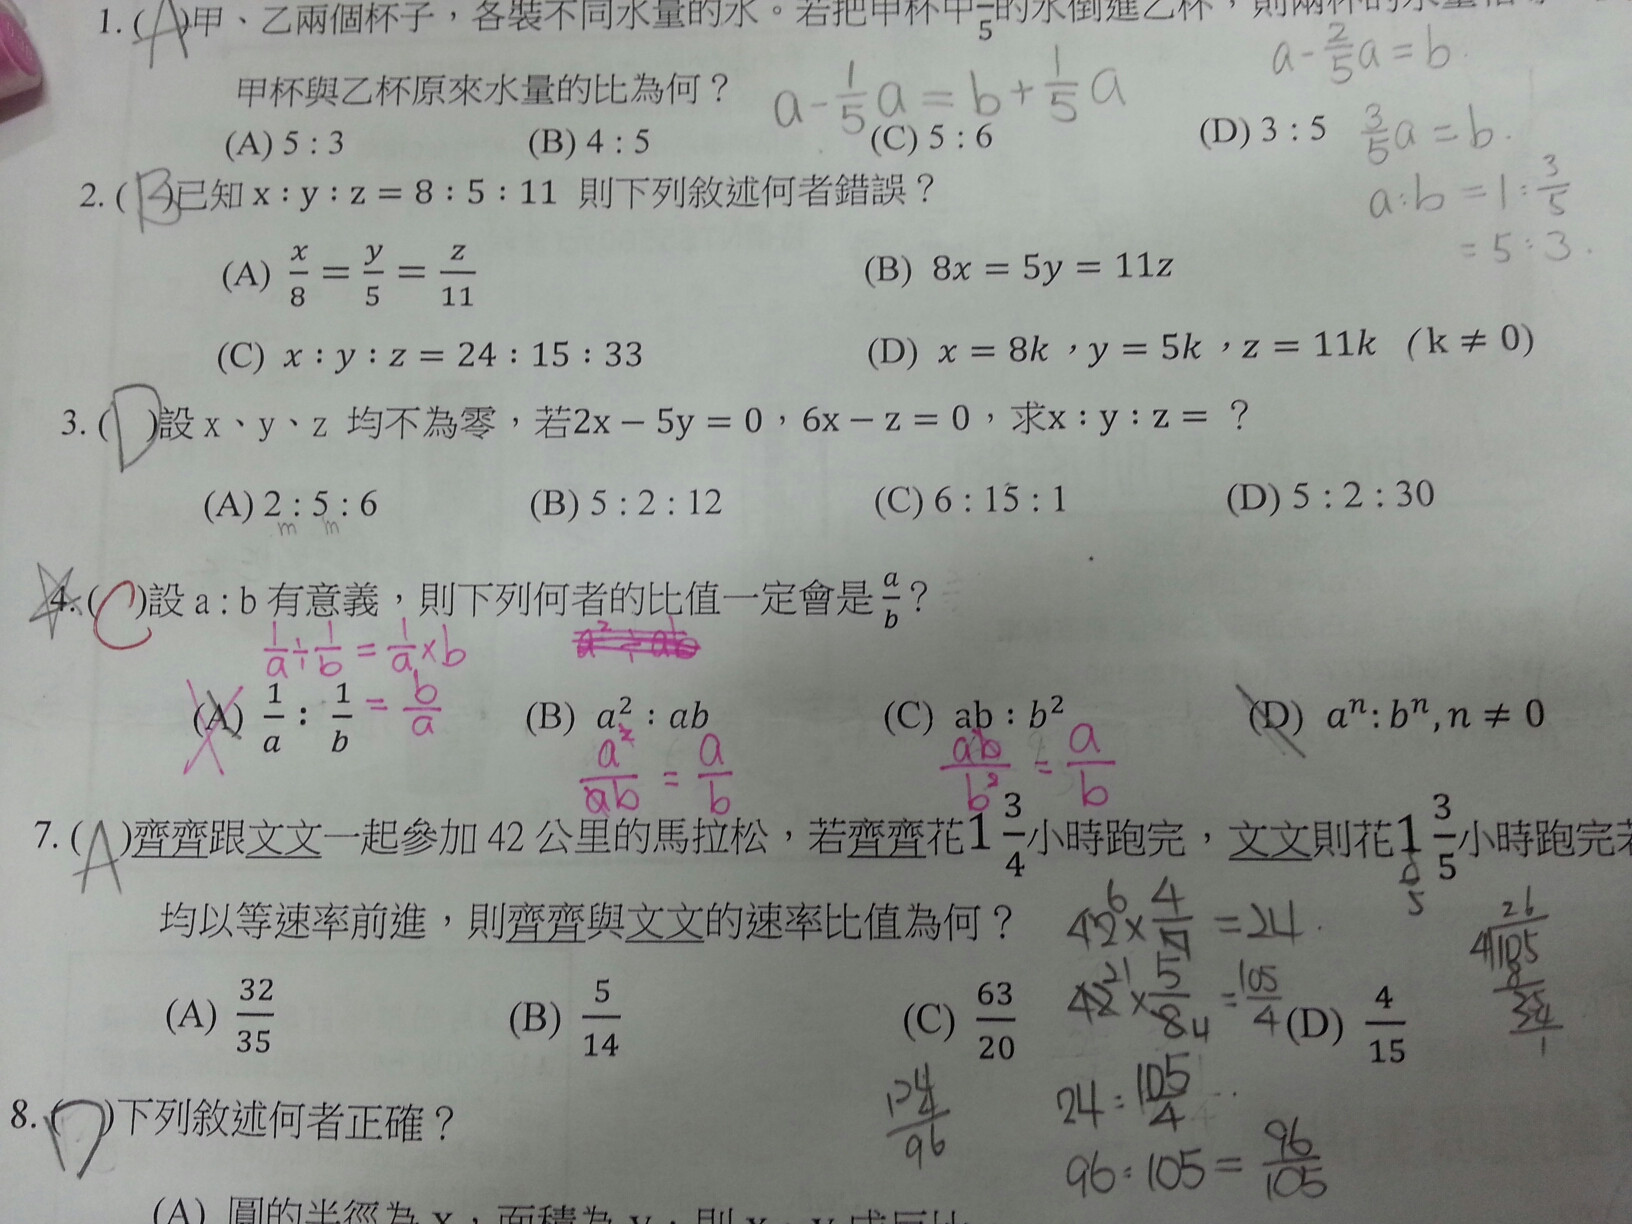 1. (A)甲、乙兩個杯子，各裝不同水量的水。若把甲杯中1/5的水倒進乙杯，則兩杯的水量相
a - 2/5 a = b
甲杯與乙杯原來水量的比為何？ a - 1/5 a = b + 1/5 a
(A) 5 : 3 (B) 4 : 5 (C) 5 : 6 (D) 3 : 5 3/5 a = b.
2. (B)已知 x : y : z = 8 : 5 : 11 則下列敘述何者錯誤？ a:b = 1 : 3/5
= 5 : 3.
(A) x/8 = y/5 = z/11 (B) 8x = 5y = 11z
(C) x : y : z = 24 : 15 : 33 (D) x = 8k，y = 5k，z = 11k （k ≠ 0)
3. (D)設 x、y、z 均不為零，若2x − 5y = 0，6x − z = 0，求x : y : z = ？
(A) 2 : 5 : 6 (B) 5 : 2 : 12 (C) 6 : 15 : 1 (D) 5 : 2 : 30
m m
4. (C)設 a : b 有意義，則下列何者的比值一定會是 a/b？
1/a ÷ 1/b = 1/a × b
(A) 1/a : 1/b = b/a (B) a² : ab (C) ab : b² (D) aⁿ: bⁿ, n ≠ 0
a²/ab = a/b ab/b² = a/b
7. (A)齊齊跟文文一起參加 42 公里的馬拉松，若齊齊花1 3/4小時跑完，文文則花1 3/5小時跑完若
均以等速率前進，則齊齊與文文的速率比值為何？ 42 6 × 4/7 = 24.
42 21 × 5/8 4 = 105/4
26
4 105
8
1
(A) 32/35 (B) 5/14 (C) 63/20 (D) 4/15
24 : 105/4
24
4
96
96 : 105 = 96/105
8. (D)下列敘述何者正確？
(A) 圓的半徑為 x，面積為 y，則 x、y 成反比